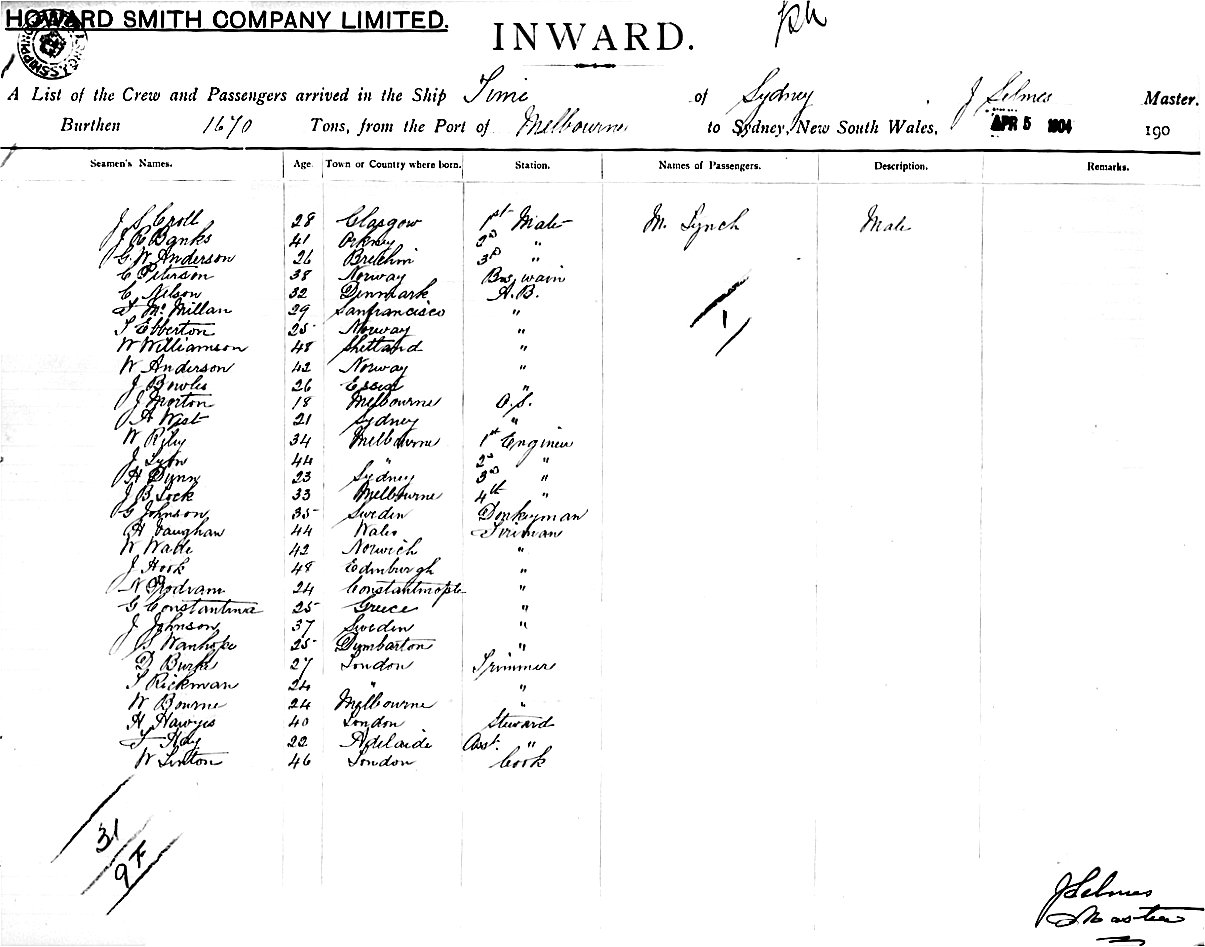 HOWARD SMITH COMPANY LIMITED.
INWARD.
A List of the Crew and Passengers arrived in the Ship Time of Sydney, J Selmes Master.
Burthen 1670 Tons, from the Port of Melbourne to Sydney, New South Wales, APR 5 1904 190
Seamen's Names. Age Town or Country where born. Station. Names of Passengers. Description. Remarks.
J S Croll 28 Glasgow 1st Mate M. Lynch Male
J R Banks 41 Orkney 2nd "
G W Anderson 26 Brechin 3rd "
C Peterson 38 Norway Bos wain
C Nelson 32 Denmark A.B.
F McMillan 29 Sanfrancisco "
S Ebberton 25 Norway "
1
W Williamson 48 Shetland "
W Anderson 42 Norway "
J Bowles 26 Essex "
J Morton 18 Melbourne O.S.
A West 21 Sydney "
W Rily 34 Melbourne 1st Engineer
J Lyon 44 " 2nd "
H Dynn 23 Sydney 3rd "
J B Lock 33 Melbourne 4th "
G Johnson 35 Sweden Donkeyman
H Vaughan 44 Wales Fireman
W Wade 42 Norwich "
J Hook 48 Edinburgh "
N Rodvam 24 Constantinople "
G Constantine 25 Greece "
J Johnson 37 Sweden "
S Wanhope 25 Dumbarton "
D Burke 27 London Trimmer
S Rickman 24 " "
W Bourne 24 Melbourne "
H Hawyes 40 London Steward
F Hay 22 Adelaide Asst. "
W Linton 46 London Cook
31
J Selmes
Master